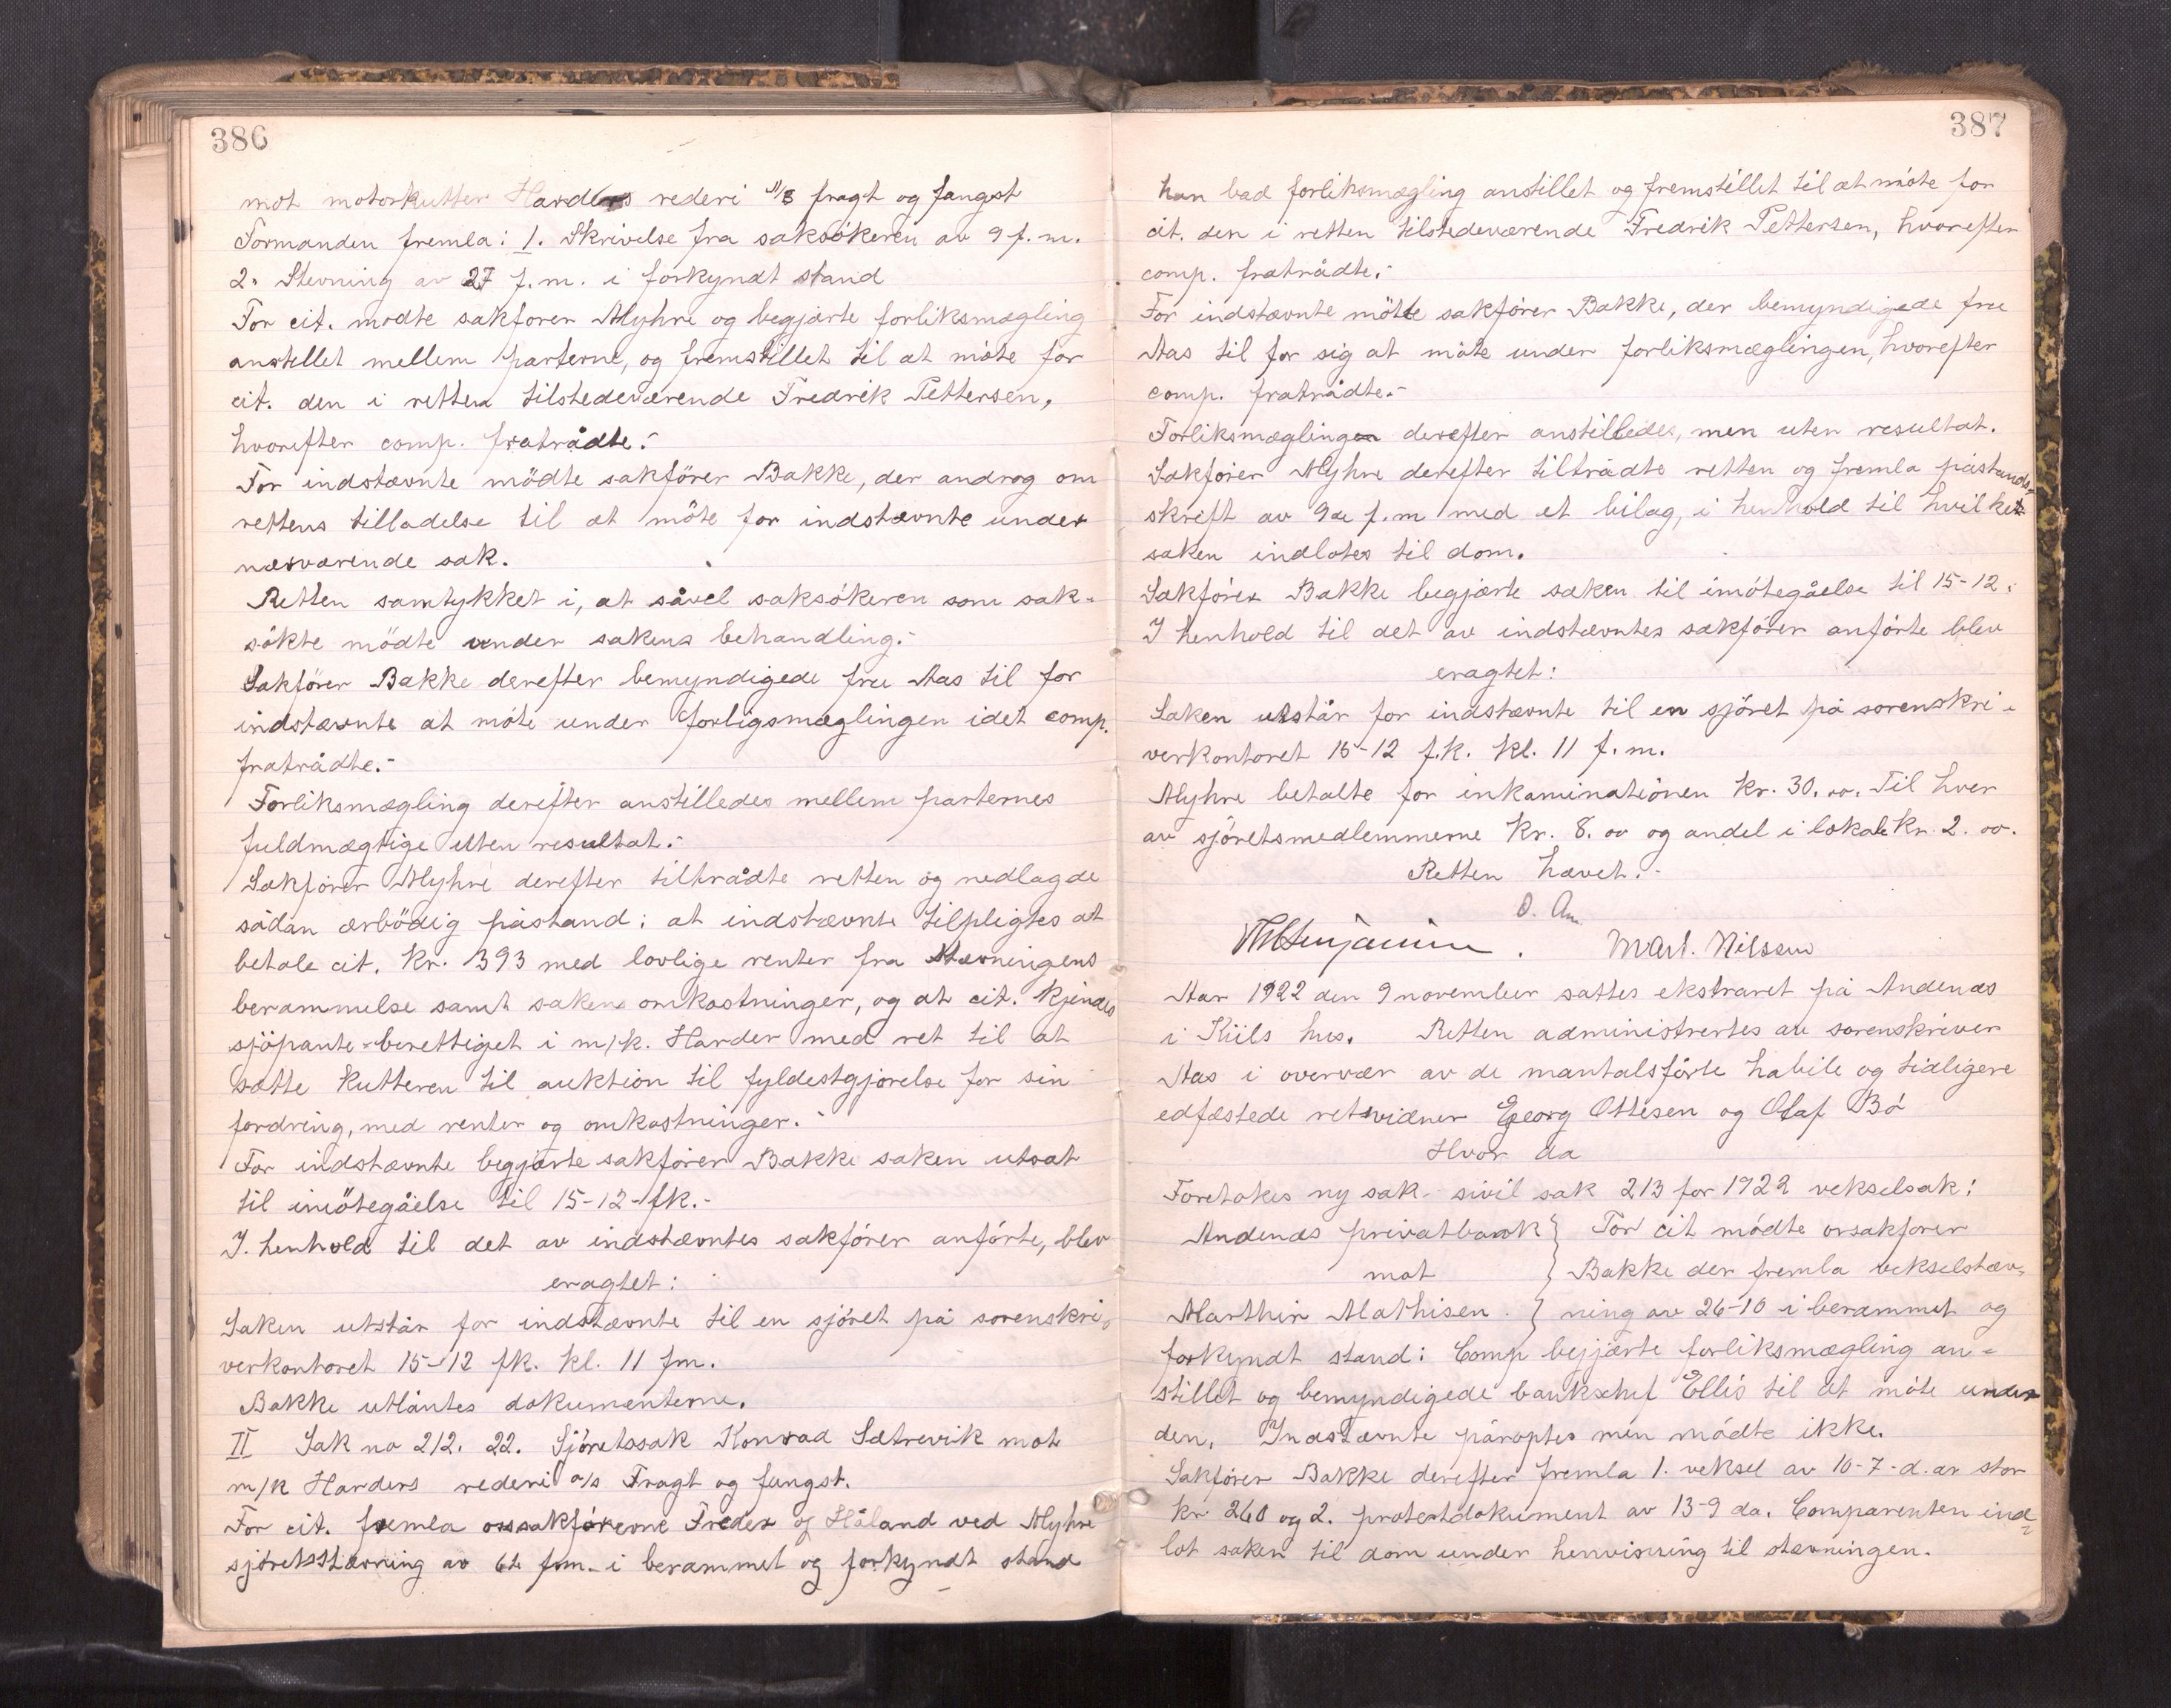 386
mot motorkutter Harders rederi A/S fragt og fangst
Formanden fremla: 1. Skrivelse fra saksökeren av 9 f.m.
2. Stevning av 27 f.m. i forkyndt stand
For cit. mödte sakförer Myhre og begjærte forliksmægling
anstillet mellem parterne, og fremstillet til at möte for
cit. den i retten tilstedeværende Fredrik Pettersen,
hvorefter comp. fratrådte.-
For indstævnte mödte sakförer Bakke, der androg om
rettens tilladelse til at möte for indstævnte under
nærværende sak.
Retten samtykket i, at såvel saksökeren som sak-
sökte mödte under sakens behandling.-
Sakförer Bakke derefter bemyndigede fru Aas til for
indstævnte at möte under forligsmæglingen idet comp.
fratrådte.-
Forliksmægling derefter anstilledes mellem parternes
fuldmægtige uten resultat.-
Sakförer Myhre derefter tiltrådte retten og nedlagde
sådan ærbödig påstand: at indstævnte tilpligtes at
betale cit. kr. 393 med lovlige renter fra stævningens
berammelse samt sakens omkostninger, og at cit. kjendes
sjöpante-berettiget i m/k. Harder med ret til at
sætte kutteren til auktion til fyldestgjörelse for sin
fordring, med renter og omkostninger.-
For indstævnte begjærte sakförer Bakke saken utsat
til imötegåelse til 15-12-fk.-
I. henhold til det av indstævntes sakförer anförte, blev
eragtet:
Saken utstår for indstævnte til en sjöret på sorenskri-
verkontoret 15-12 fk. kl. 11 fm.
Bakke utlåntes dokumenterne.
II Sak no 212. 22. Sjöretssak Konrad Sætrevik mot
m/k Harders rederi a/s Fragt og fangst.
For cit. fremla orsakförerne Freder og Håland ved Myhre
sjöretsstævning av 6te fm. i berammet og forkyndt stand
387
han bad forliksmægling anstillet og fremstillet til at möte for
cit. den i retten tilstedeværende Fredrik Pettersen, hvorefter
comp. fratrådte.-
For indstævnte mötte sakförer Bakke, der bemyndigede fru
Aas til for sig at möte under forliksmæglingen, hvorefter
comp. fratrådte.-
Forliksmæglingen derefter anstilledes, men uten resultat.
Sakförer Myhre derefter tiltrådte retten og fremla påstands-
skrift av 9de f.m med et bilag, i henhold til hvilket
saken indlotes til dom.
Sakförer Bakke begjærte saken til imötegåelse til 15-12.
I henhold til det av indstævntes sakförer anförte blev
eragtet:
Saken utstår for indstævnte til en sjöret på sorenskri-
verkontoret 15-12 f.k. kl. 11 f.m.
Myhre betalte for inkaminationen kr. 30.00. Til hver
av sjöretsmedlemmerne kr. 8.00 og andel i lokale kr. 2.00.
Retten hævet.-
Mart. Nilssen
Aar 1922 den 9 november sattes ekstraret på Andenæs
i Kiils hus. Retten administrertes av sorenskriver
Aas i overvær av de mantalsförte habile og tidligere
edfæstede retsvidner Georg Ottesen og Olaf Bö
Hvor da
Foretokes ny sak- sivil sak 213 for 1922 vekselsak:
Andenæs privatbank } For cit mödte orsakförer
mot } Bakke der fremla vekselstæv-
Marthin Mathisen. } ning av 26-10 i berammet og
forkyndt stand: Comp bejjærte forliksmægling an-
stillet og bemyndigede bankchef Ellis til at möte under
den. Indstævnte påroptes men mödte ikke.
Sakförer Bakke derefter fremla 1. veksel av 10-7-d.år stor
kr 260 og 2. protestdokument av 13-9 då. Comparenten ind-
lot saken til dom under henvisning til stævningen.